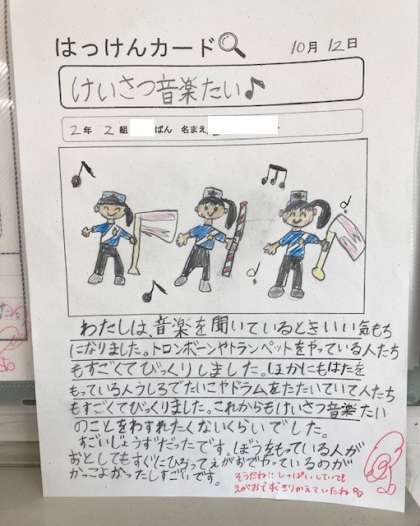 はっけんカード
10月 12日
けいさつ音楽たい♪
2年 2組 ばん 名まえ
わたしは、音楽を聞いているときいい気もち
になりました。トロンボーンやトランペットをやっている人たち
もすごくてびっくりしました。ほかにもはたを
もっている人うしろでたいこやドラムをたたいていて人たち
もすごくてびっくりました。これからもけいさつ音楽たい
のことをわすれたくないくらいでした。
すごいじょうずだったです。ぼうをもっている人が
おとしてもすぐにひろってえがおでやっているのが
かっこよかったしすごいです。
そうだね!!しっぱいしていても
えがおですぐきりかえていたね